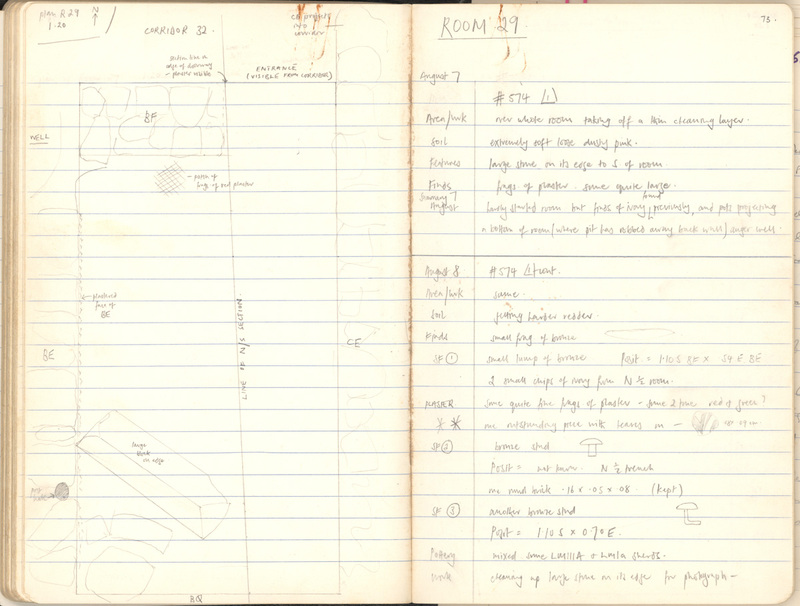 Plan R 29
1:20
N
CORRIDOR 32.
Section line on
edge of doorway
- plaster visible
ENTRANCE
(VISIBLE FROM CORRIDOR)
BF
WELL
patch of
frag of red plaster
plastered
face of
BE
BE
LINE OF N/S SECTION.
CE
large
block
on edge
BQ
ROOM 29.
73.
August 7
#574 /1\
Area/wk over whole room taking off a thin cleaning layer.
Soil extremely soft loose dusty pink.
Features large stone on its edge to S of room
Finds frags of plaster. some quite large.
Summary 7
August hardly started room but finds of ivory found previously, and pots projecting
a bottom of room (where pit has robbed away back wall) augur well.
August 8 #574 /1\ cont.
Area/wk same.
Soil getting harder redder.
Finds small frag of bronze
SF ① small lump of bronze Posit = 1.10 S BF × .54 E BE
2 small chips of ivory from N ½ room.
PLASTER some quite fine frags of plaster - some 2 tone red & green?
* * one outstanding piece with leaves on -
SF ② bronze stud
Posit = not known. N ½ trench
one mud brick .16 × .05 × .08. (Kept)
SF ③ another bronze stud
Posit = 1.10 S × 0.70 E.
Pottery mixed some LMIIIA & LMIA sherds.
Work cleaning up large stone on its edge for photograph -